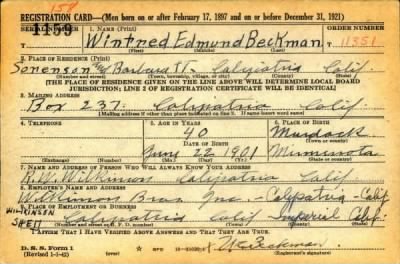 158
REGISTRATION CARD—(Men born on or after February 17, 1897 and on or before December 31, 1921)
SERIAL NUMBER 1. NAME (Print) ORDER NUMBER
1159 Winfred Edmund Beckman 11351
(First) (Middle) (Last)
2. PLACE OF RESIDENCE (Print)
Sorenson & Barbara St. Calipatria Calif
(Number and street) (Town, township, village, or city) (County) (State)
[THE PLACE OF RESIDENCE GIVEN ON THE LINE ABOVE WILL DETERMINE LOCAL BOARD
JURISDICTION; LINE 2 OF REGISTRATION CERTIFICATE WILL BE IDENTICAL]
3. MAILING ADDRESS
Box 237. Calipatria Calif.
[Mailing address if other than place indicated on line 2. If same insert word same]
4. TELEPHONE 5. AGE IN YEARS 6. PLACE OF BIRTH
40 Murdock
DATE OF BIRTH (Town or county)
June 22 1901 Minnesota
(Exchange) (Number) (Mo.) (Day) (Yr.) (State or country)
7. NAME AND ADDRESS OF PERSON WHO WILL ALWAYS KNOW YOUR ADDRESS
R. W. Wilkinson Calipatria Calif
8. EMPLOYER'S NAME AND ADDRESS
Wilkinson Bros. Inc. - Calipatria - Calif
WILKINSON
9. PLACE OF EMPLOYMENT OR BUSINESS
SHETT Calipatria Calif Imperial Calif.
(Number and street or R. F. D. number) (Town) (County) (State)
I AFFIRM THAT I HAVE VERIFIED ABOVE ANSWERS AND THAT THEY ARE TRUE.
D. S. S. Form 1
(Revised 1-1-42) (over) W E Beckman
(Registrant's signature)